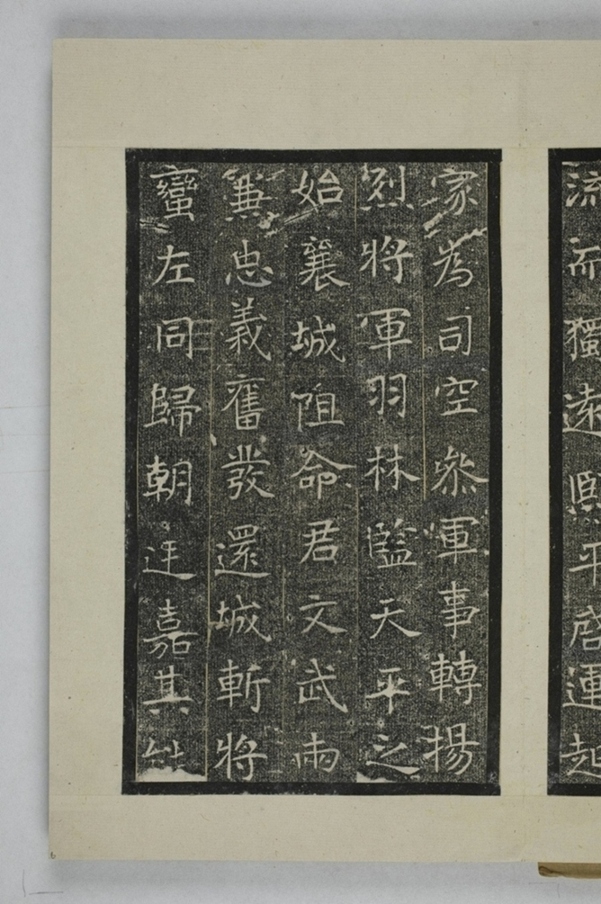 流而獨遠熙平啓運起
家為司空參軍事轉揚
烈將軍羽林監天平之
始襄城阻命君文武兩
兼忠義奮發還城斬將
蠻左同歸朝廷嘉其